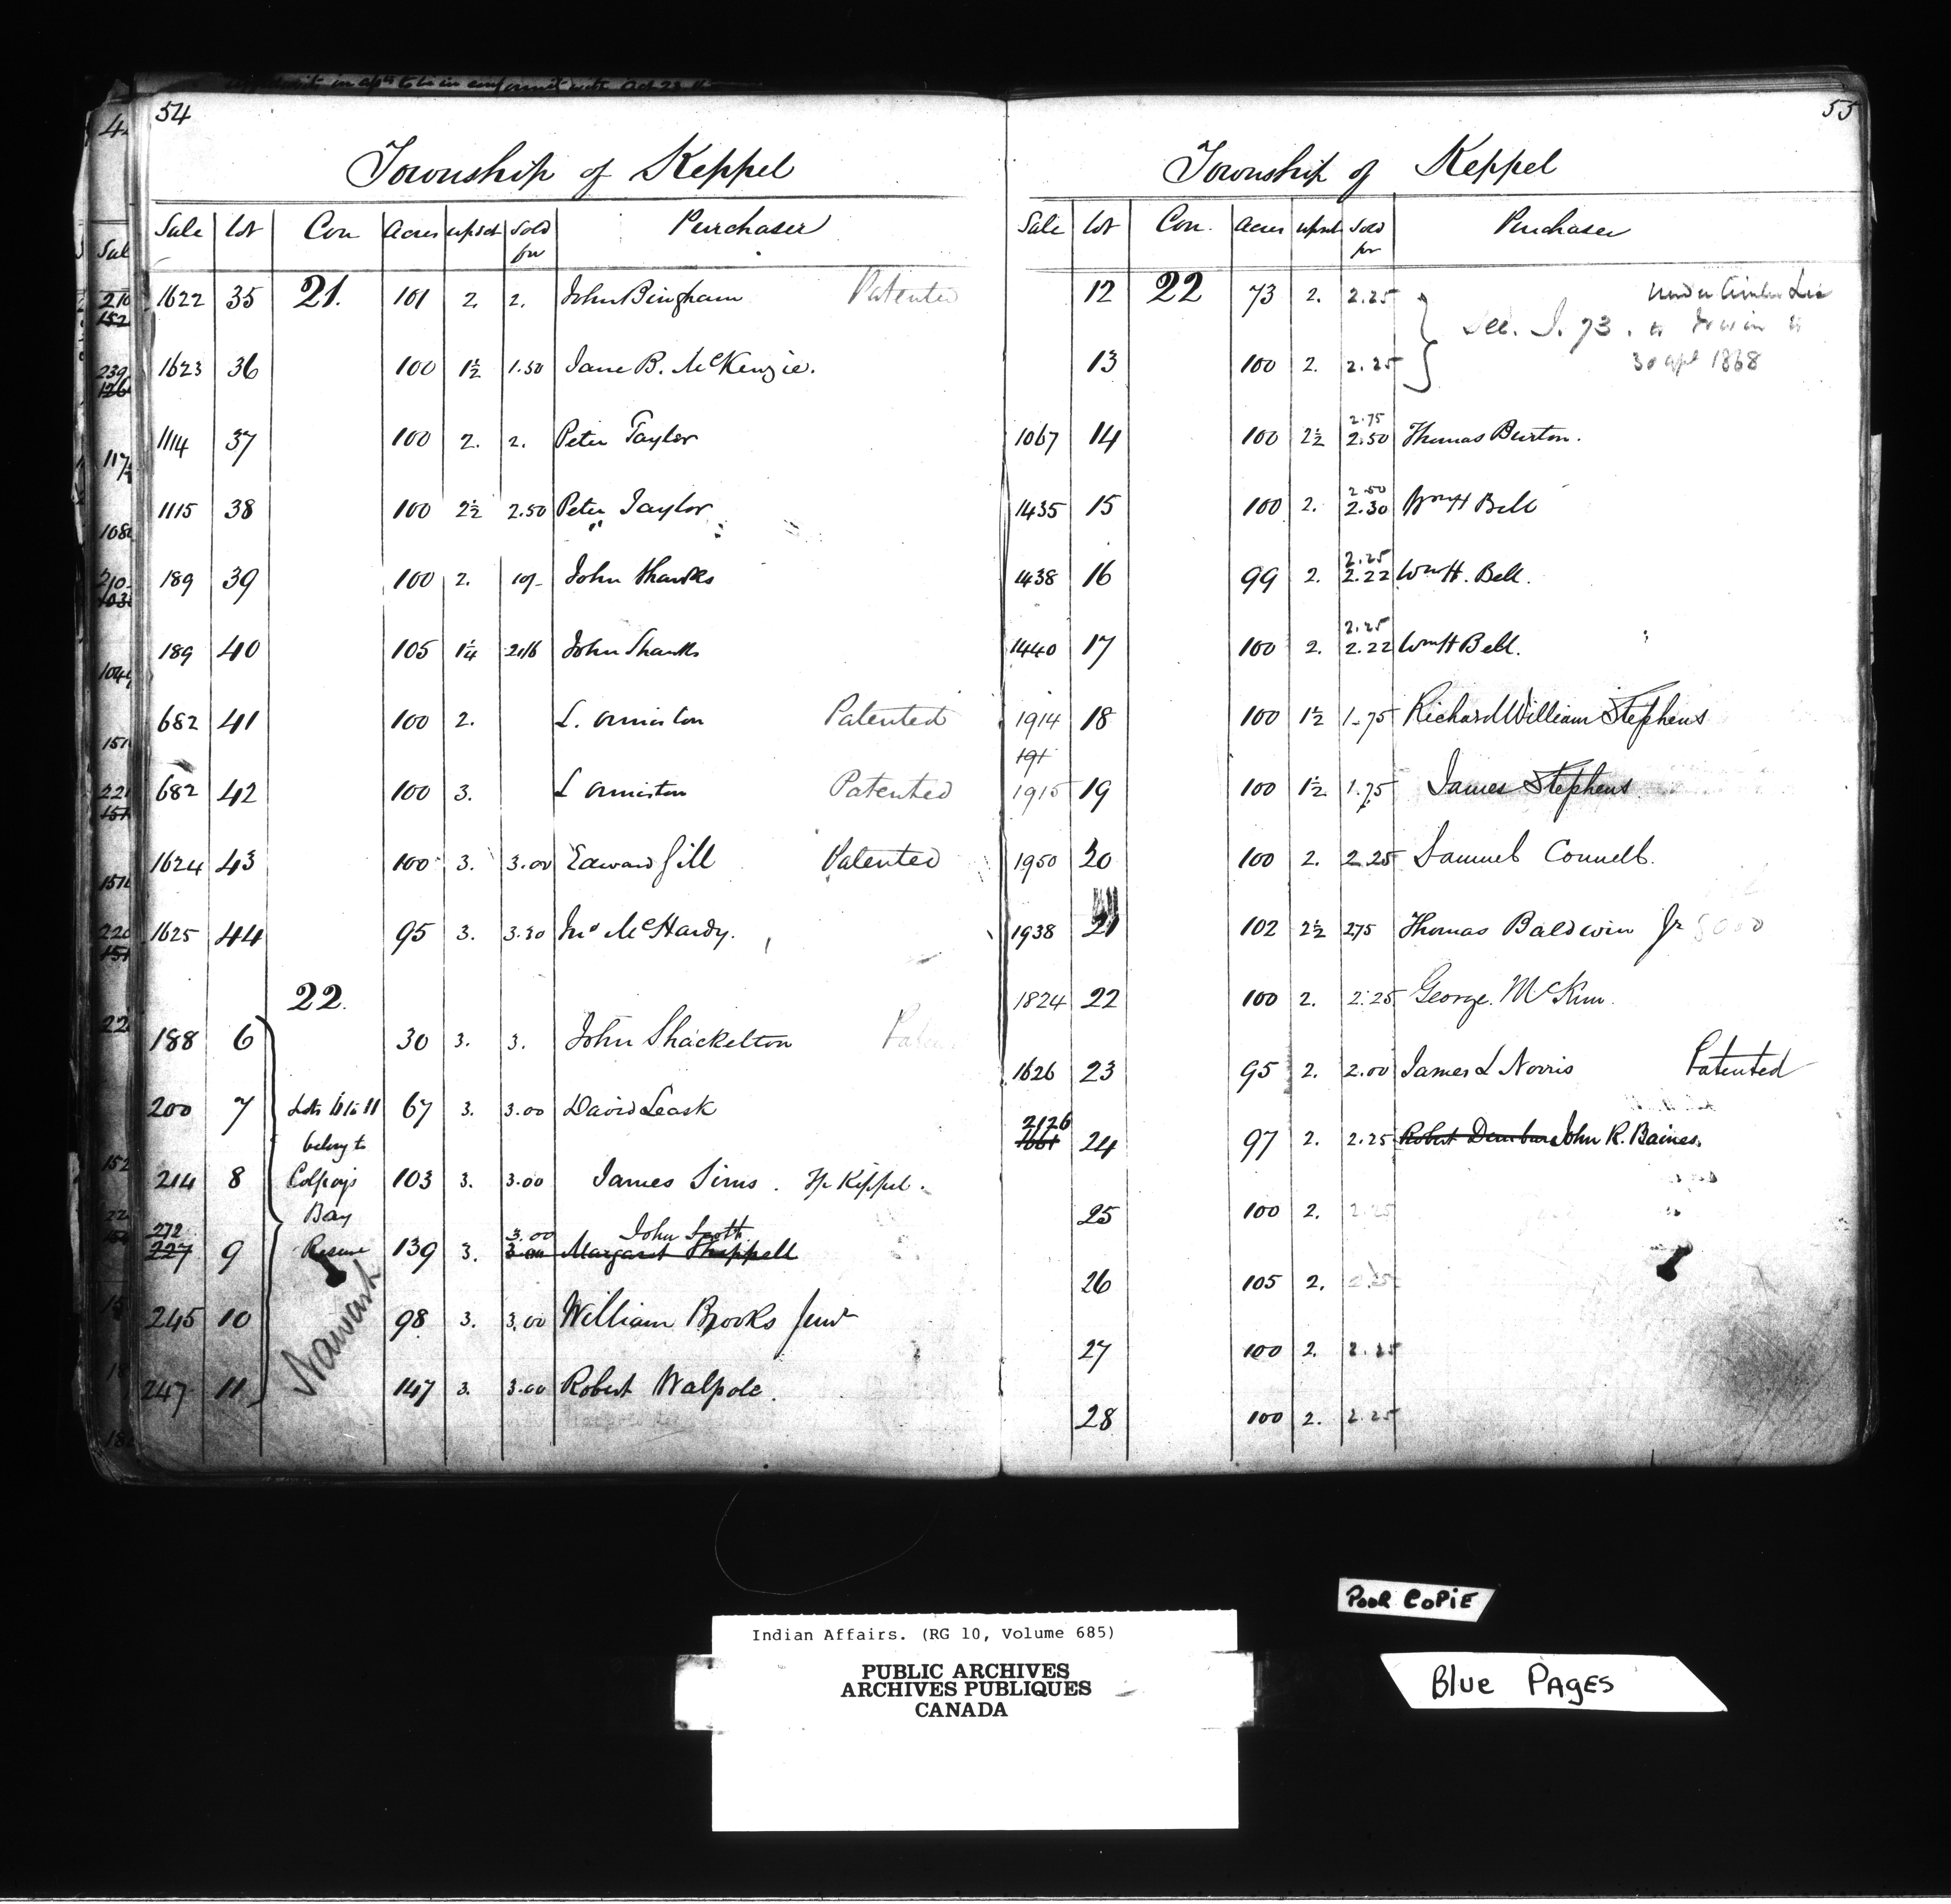 54
Township of Keppel
Sale Lot Con Acres upset Sold for Purchaser
1622 35 21. 101 2. 2. John Bingham Patented
1623 36 100 1½ 1.50 Jane B. McKenzie.
1114 37 100 2. 2. Peter Taylor
1115 38 100 2½ 2.50 Peter Taylor
189 39 100 2. 10/- John Shanks
189 40 105 1¼ John Shanks
682 41 100 2. L. Ormiston Patented
682 42 100 3. L Ormiston Patented
1624 43 100 3. 3.00 Edward Gill Patented
1625 44 95 3. 3.30 Jno McHardy.
22.
188 6 30 3. 3. John Shackelton
200 7 Lots 6 to 11 67 3. 3.00 David Leask
belong to
214 8 Colpoys 103 3. 3.00 James Sims. Tp Keppel.
Bay
272 3.00 John Scott
227 9 Reserve 139 3. 3.00 Margaret Sheppell
245 10 98 3. 3.00 William Brooks Junr
Nawash
247 11 147 3. 3.00 Robert Walpole.
55
Township of Keppel
Sale Lot Con. Acres upset Sold for Purchaser
12 22 73 2. 2.25 under
13 100 2. 2.25 30 Apl 1868
2.75
1067 14 100 2½ 2.50 Thomas Burton.
2.50
1435 15 100 2. 2.30 Wm H Bell
2.25
1438 16 99 2. 2.22 Wm H. Bell.
2.25
1440 17 100 2. 2.22 Wm H Bell.
1914 18 100 1½ 1.75 Richard William Stephens
191
1915 19 100 1½ 1.75 James Stephens
1950 20 100 2. 2.25 Samuel Connell.
1938 21 102 2½ 2.75 Thomas Baldwin Jr
1824 22 100 2. 2.25 George McKim.
1626 23 95 2. 2.00 James L Norris Patented
2126
1661 24 97 2. 2.25 Robert John R. Baines.
25 100 2. 2.25
26 105 2. 2.25
27 100 2. 2.25
28 100 2. 2.25
Poor Copie
Blue Pages
Indian Affairs. (RG 10, Volume 685)
PUBLIC ARCHIVES
ARCHIVES PUBLIQUES
CANADA